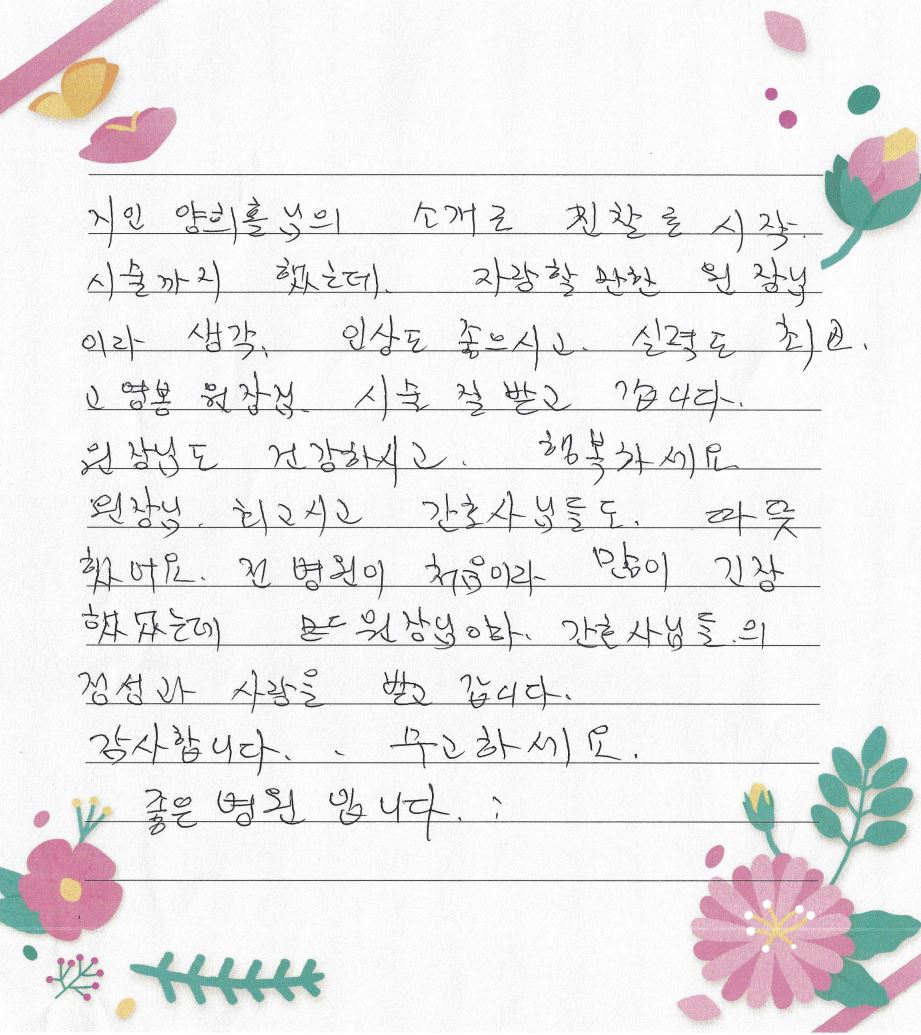 지인 양희홀님의 소개로 진찰을 시작.
시술까지 했는데. 자랑할 만한 원장님
이라 생각. 인상도 좋으시고. 실력도 최고.
고영봉 원장님. 시술 잘 받고 갑니다.
원장님도 건강하시고. 행복하세요
원장님. 최고시고 간호사님들도. 따뜻
했어요. 전 병원이 처음이라 많이 긴장
했었는데 원장님이랑. 간호사님들.의
정성과 사랑을 받고 갑니다.
감사합니다. . 무고하세요.
좋은 병원 입니다. :